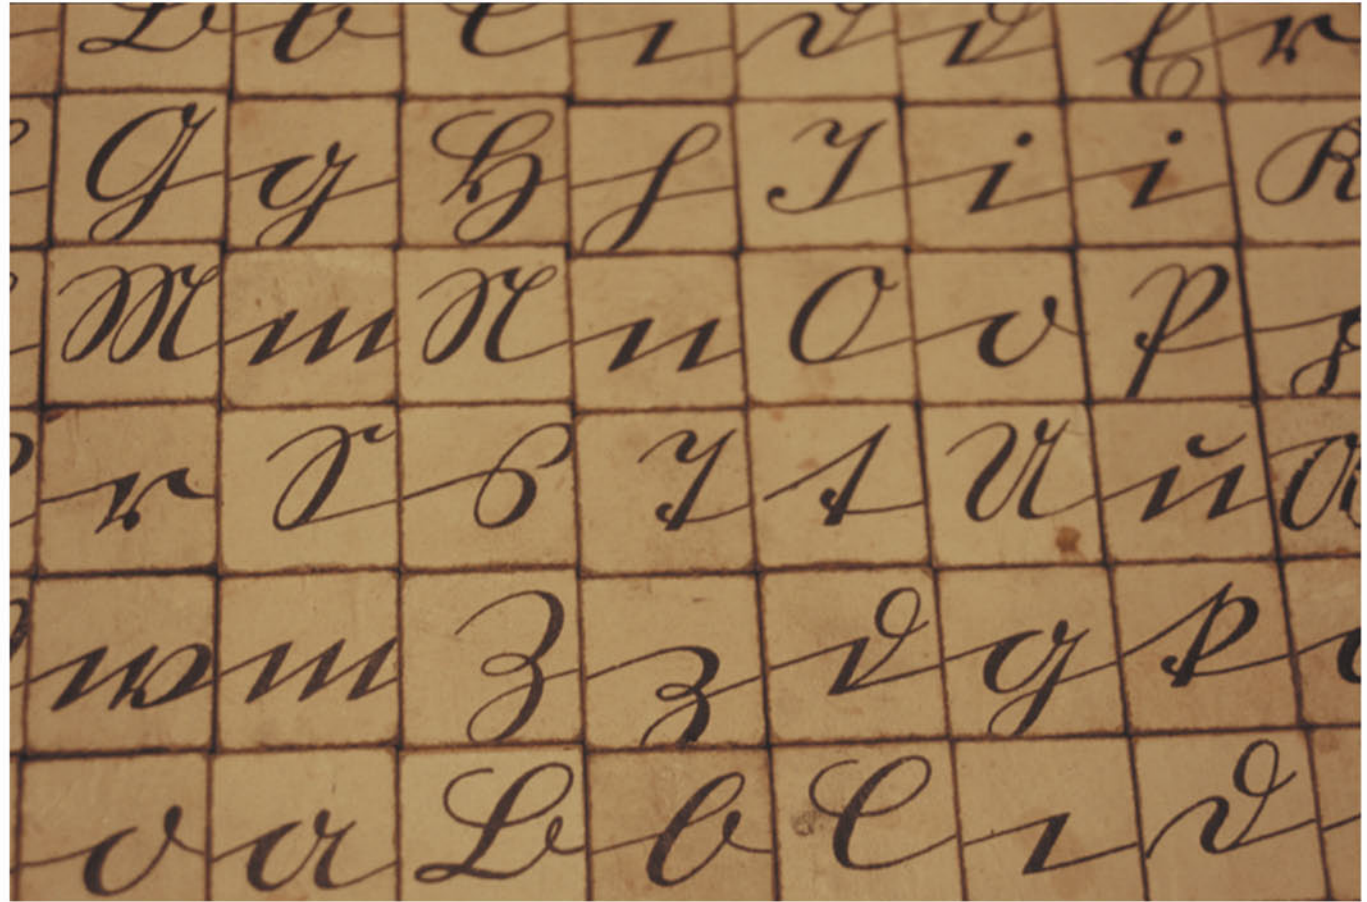 B b C c D d
G g H h I i i K
M m N n O o P p
r S s T t U u
w m Z z d g k
o a B b C c D